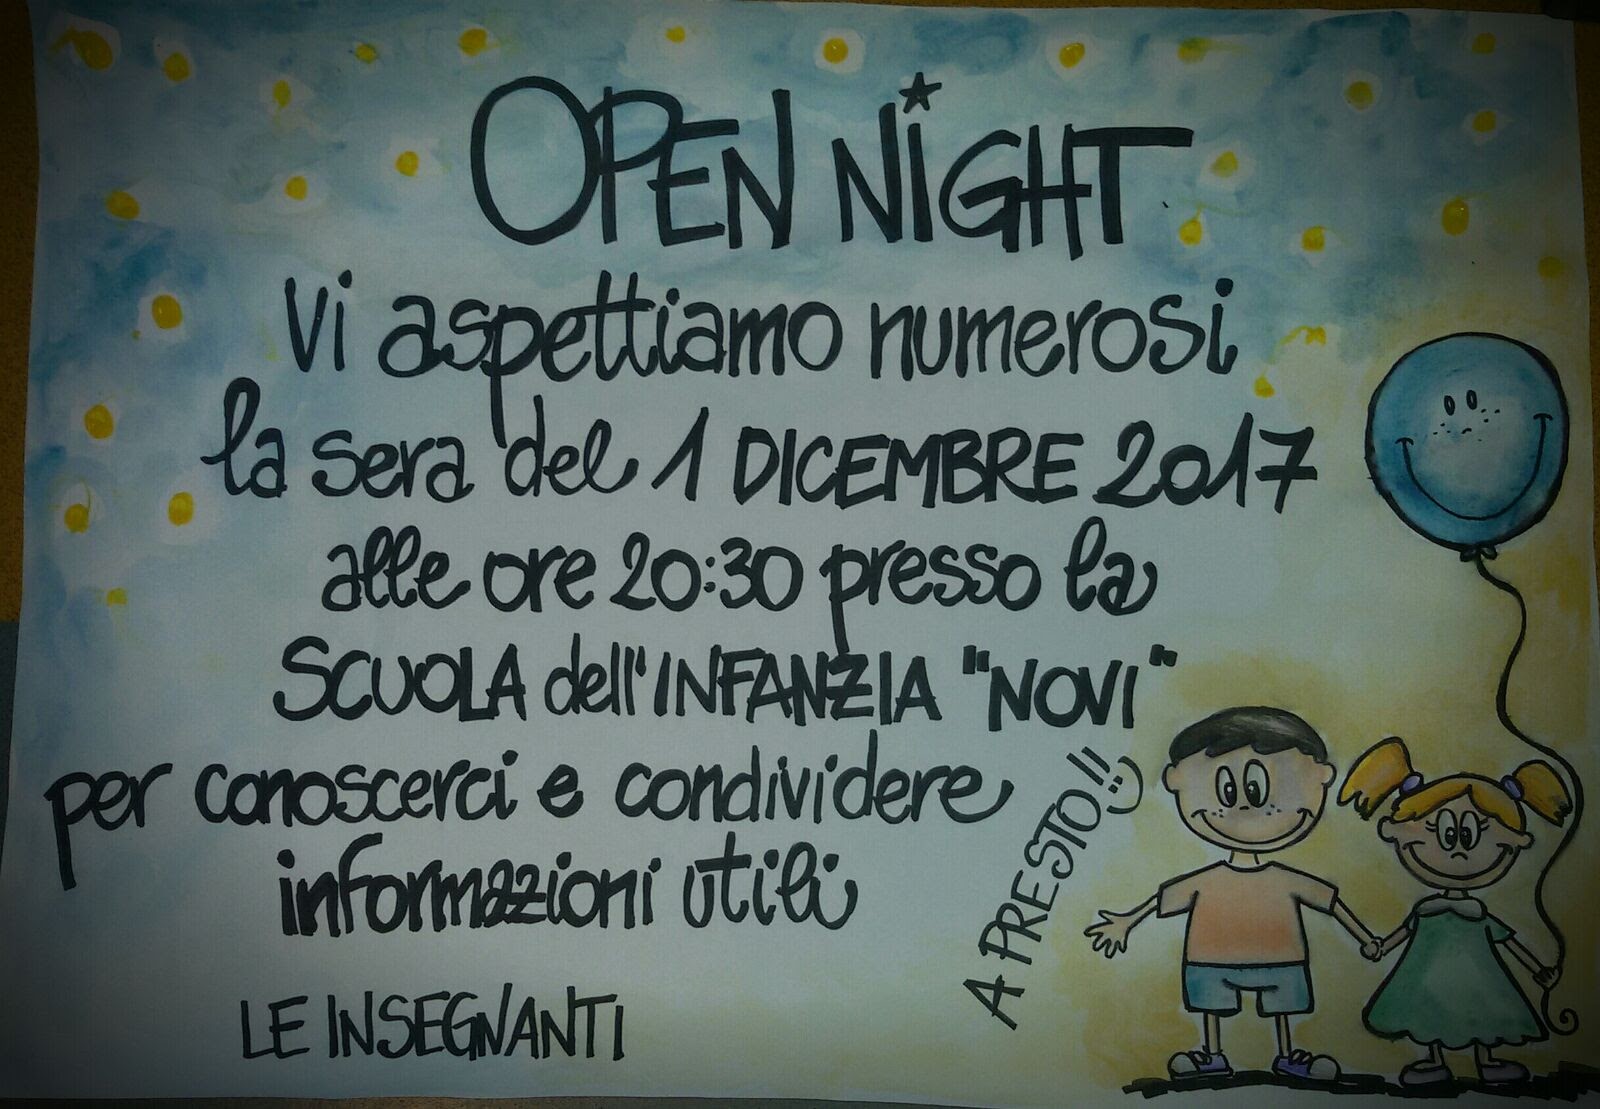 OPEN NiGHT
Vi aspettiamo numerosi
la sera del 1 DICEMBRE 2017
alle ore 20:30 presso la
SCUOLA dell'INFANZIA "NOVI"
per conoscerci e condividere
informazioni utili
A PRESTO!! :)
LE INSEGNANTI